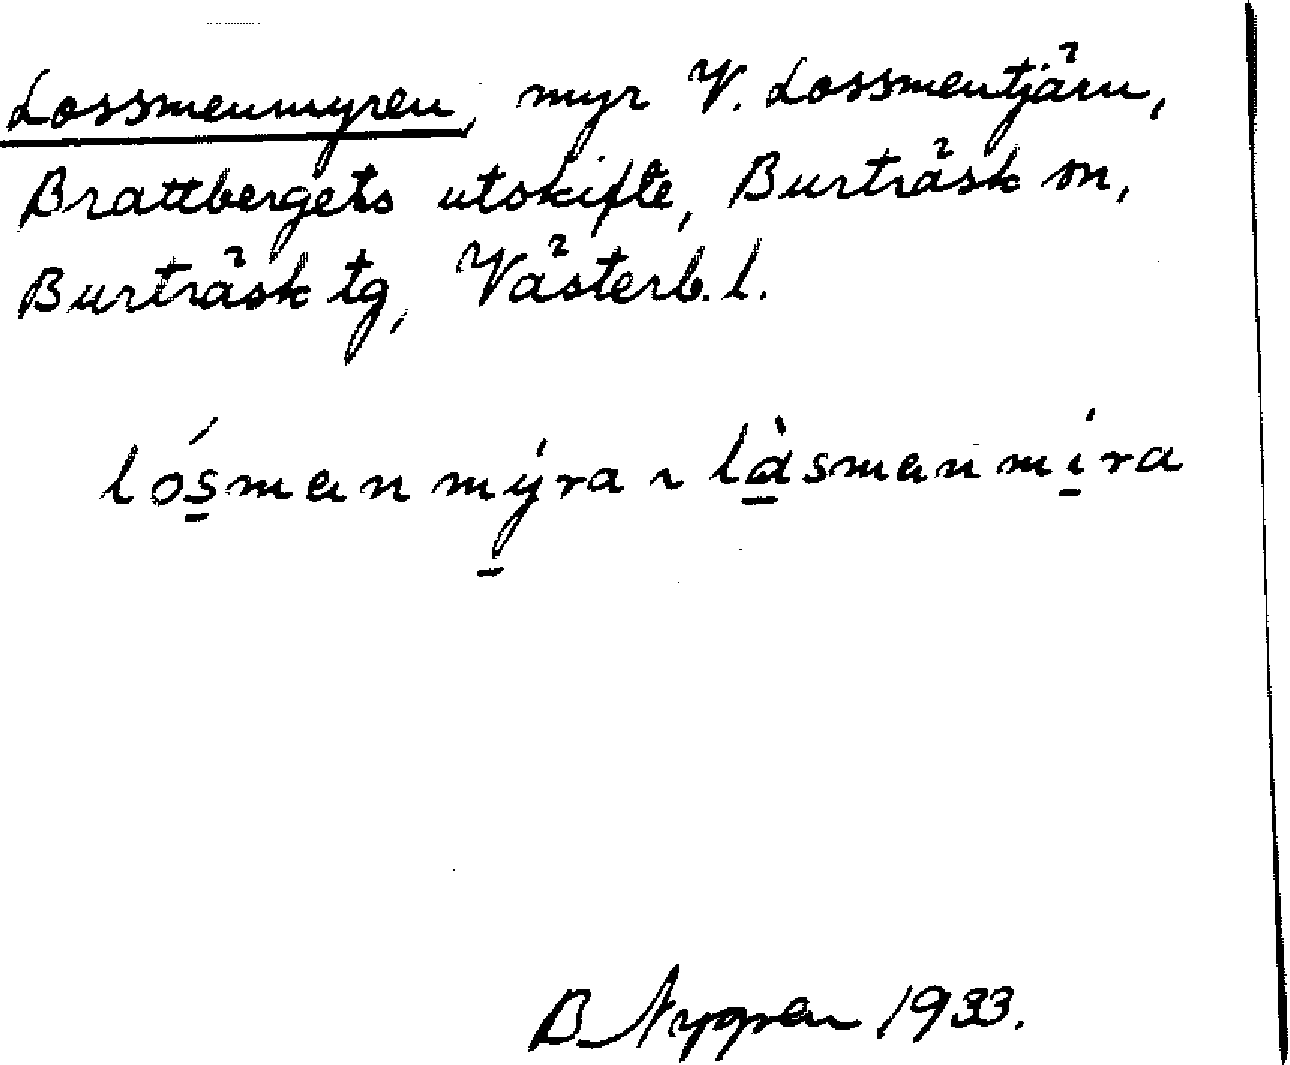 Lossmenmyren, myr V. Lossmentjärn,
Brattbergets utskifte, Burträsk sn,
Burträsk tg, Västerb. l.
lós̱man mý̱ra ~ là̱sman mí̱ra
B. Nygren 1933.